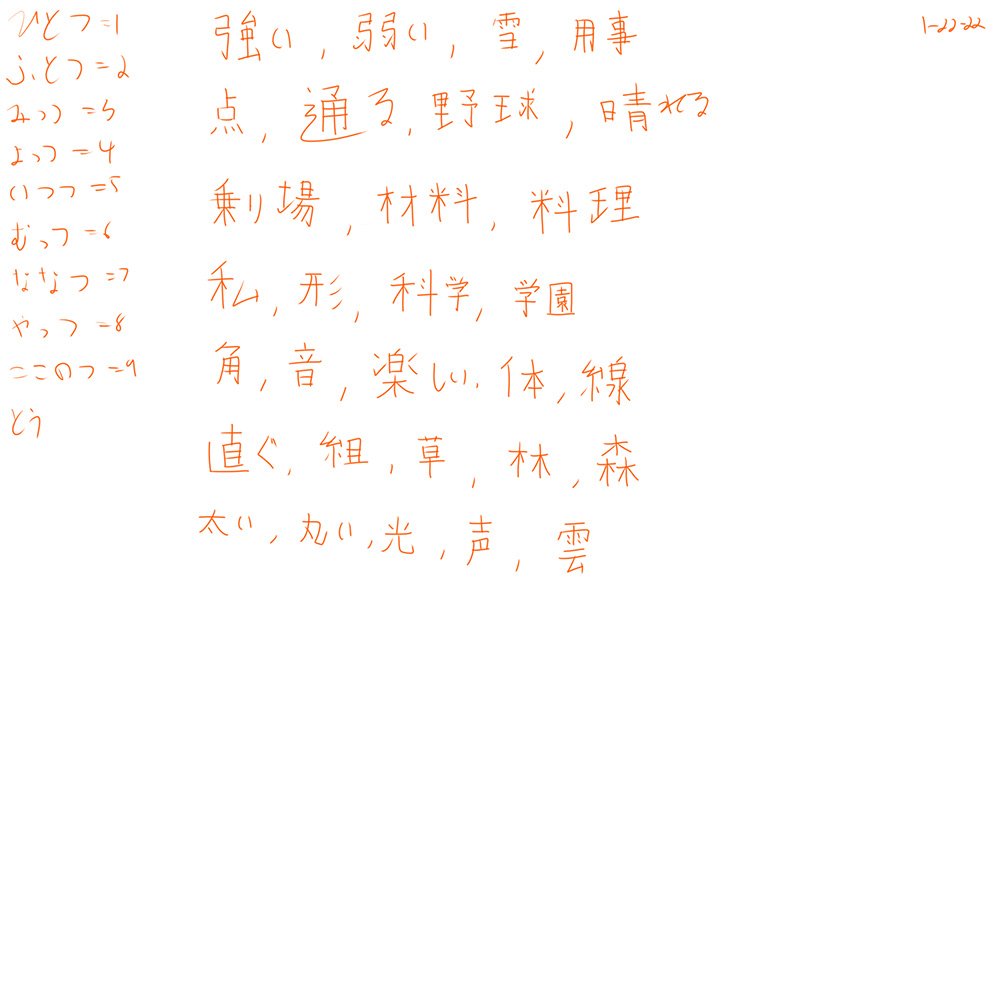 ひとつ=1
ふとつ=2
みっつ=3
よっつ=4
いつつ=5
むっつ=6
ななつ=7
やっつ=8
ここのつ=9
とう
強い, 弱い, 雪, 用事
点, 通る, 野球, 晴れる
乗り場, 材料, 料理
私, 形, 科学, 学園
角, 音, 楽しい, 体, 線
直ぐ, 組, 草, 林, 森
太い, 丸い, 光, 声, 雲
1-22-22